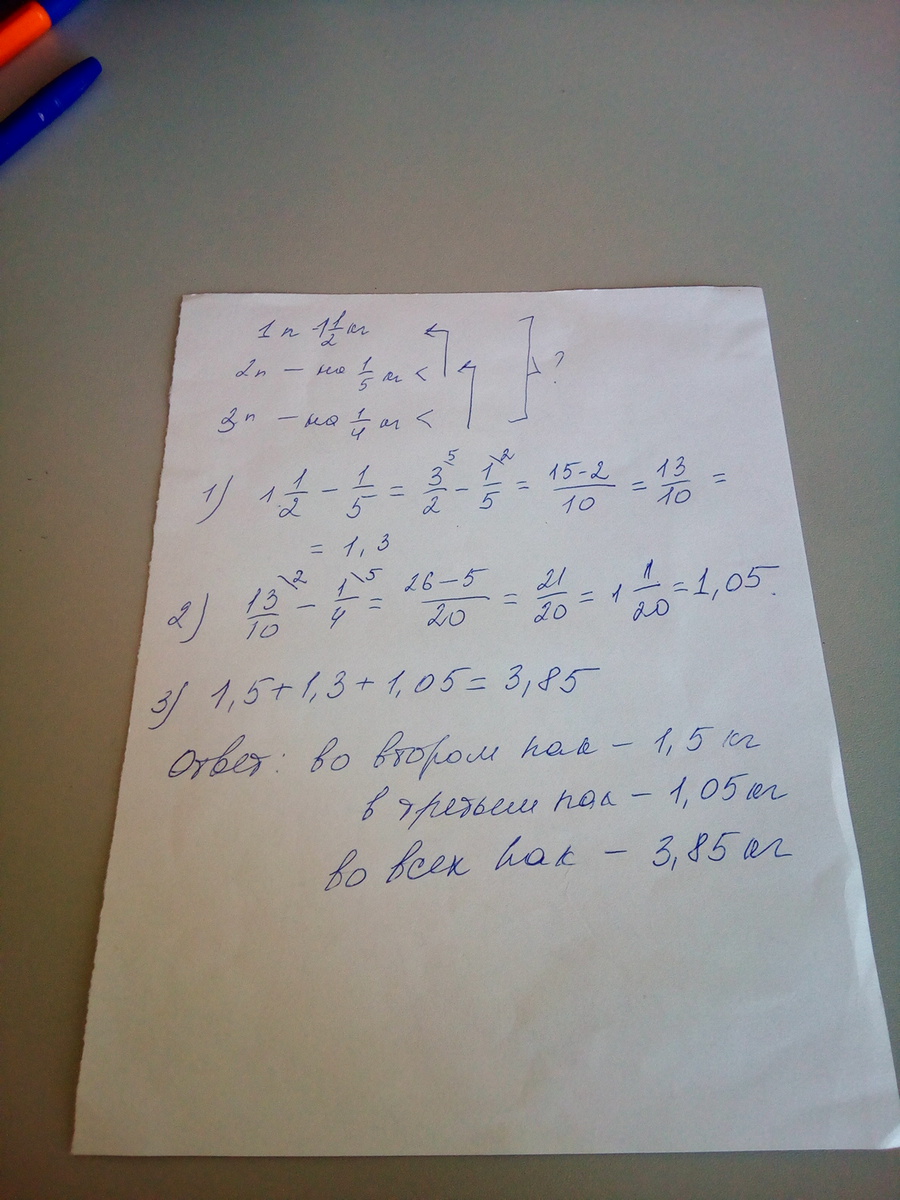 1п 1 1/2 кг
2п – на 1/5 кг <
3п – на 1/4 кг <
?
1) 1 1/2 – 1/5 = 3/2 \5 – 1/5 \2 = 15-2/10 = 13/10 =
= 1,3
2) 13/10 \2 – 1/4 \5 = 26–5/20 = 21/20 = 1 1/20 = 1,05.
3) 1,5+1,3+1,05= 3,85
Ответ: во втором пак – 1,5 кг
в третьем пак – 1,05 кг
во всех пак – 3,85 кг